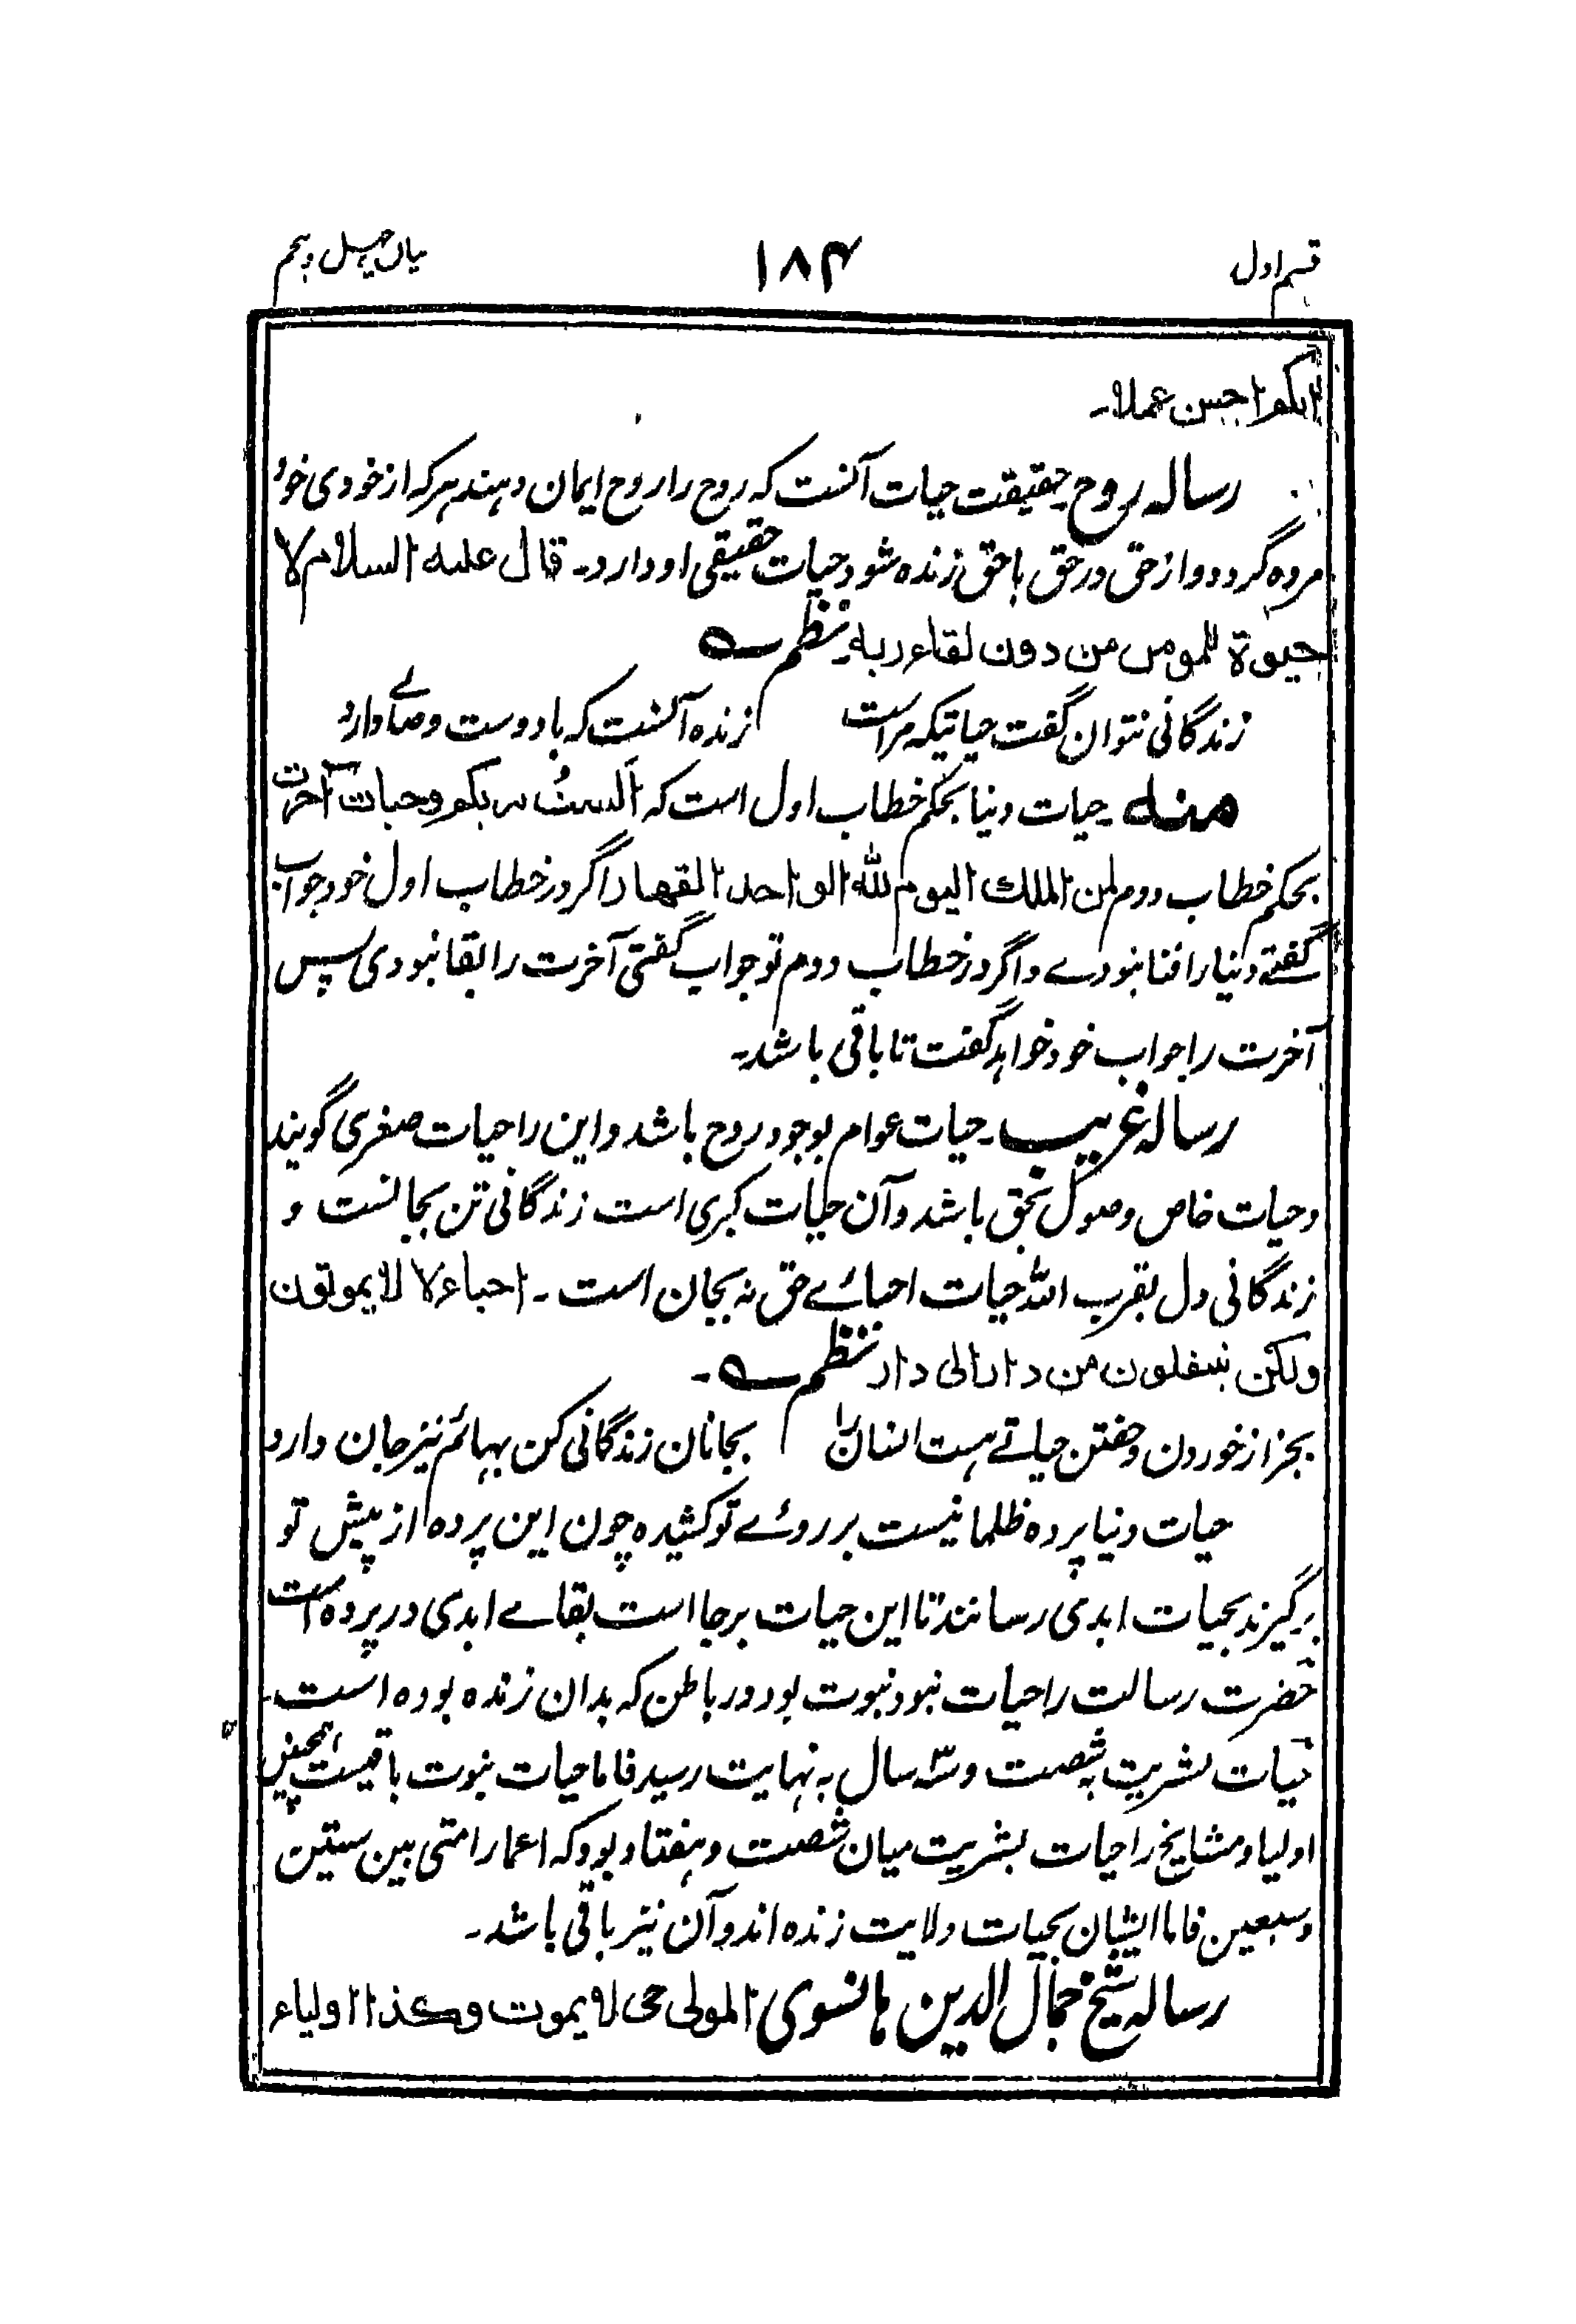 قسم اول ۱۸۴ بیان چهل و پنجم
ایکم احسن عملا۔
رسالہ روح۔ حقیقت حیات آنست کہ روح را روح ایمان دہند ہر کہ از خودی خود
مردہ گردد و از حق در حق با حق زندہ شود حیات حقیقی او دارد۔ قال علیہ السلام لا
حیوة للمومن من دون لقاء ربہ۔ نظم ؎
زندگانی نتوان گفت حیاتیکہ مراست زندہ آنست کہ با دوست وصالے دارد
منہ۔ حیات دنیا بحکم خطاب اول است کہ اَلستُ بربکم وحیات آخرت
بحکم خطاب دوم لمن الملک الیوم للہ الواحد القہار اگر در خطاب اول خود جواب
گفتے دنیا را فنا نبودے و اگر در خطاب دوم تو جواب گفتی آخرت را بقا نبودی سپس
آخرت را جواب خود خواہد گفت تا باقی باشد۔
رسالہ غریب۔ حیات عوام بوجود روح باشد و این را حیات صغری گویند
و حیات خاص وصول بحق باشد و آن حیات کبری است زندگانی تن بجانست و
زندگانی دل بقرب اللہ حیات احبائے حق نہ بجان است۔ احباءلا لا یموتون
ولکن ینقلون من دار الی دار نظم ؎۔
بجز از خوردن و خفتن حیاتے ہست انسان را بجانان زندگانی کن بہائم نیز جان دارد
حیات دنیا پردہ ظلمانیست بر روئے تو کشیدہ چون این پردہ از پیش تو
برگیرند بحیات ابدی رسانند تا این حیات برجا است بقاے ابدی در پردہ است
حضرت رسالت را حیات نبود نبوت بود در باطن کہ بدان زندہ بودہ است۔
حیات بشریت بشصت و سہ سال بہ نہایت رسید فاما حیات نبوت باقیست ہمچنین
اولیا و مشایخ را حیات بشریت میان شصت و ہفتاد بود کہ اعمار امتی بین ستین
وسبعین فاما ایشان بحیات ولایت زندہ اند و آن نیز باقی باشد۔
رسالہ شیخ جمال الدین ہانسوی المولی حی لا یموت وکذا اولیاء